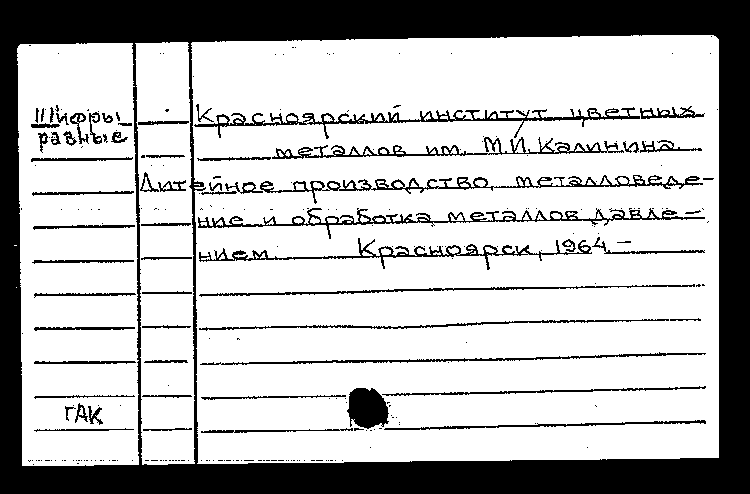 Шифры
разные
Красноярский институт цветных
металлов им. М.И. Калинина.
Литейное производство, металловеде-
ние и обработка металлов давле-
нием. Красноярск, 1964.-
ГАК